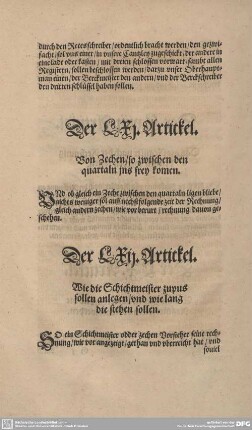 durch den Receßschreiber/ordentlich bracht werden/den gezwi-
facht/sol vns einer/in vnsere Cantzley zugeschickt/der ander in
eine lade oder kasten/mit dreien schlossen vorwart/sambt allen
Registern/sollen beschlossen werden/darzu vnser Oberhaupt-
man einen/der Berckmeister den andern/vnd der Berckschreiber
den dritten schlüssel haben sollen.
Der LXj. Artickel.
Von Zechen/so zwischen den
quartaln jns frey komen.
VNd ob gleich ein Zeche zwischen den quartaln ligen bliebe/
nichts weniger sol auff nechstfolgende zeit der Rechnung/
gleich andern zechen/wie vor berurt/rechnung dauon ge-
schehen.
Der LXij. Artickel.
Wie die Schichtmeister zupus
sollen anlegen/vnd wie lang
die stehen sollen.
SO ein Schichtmeister odder zechen Vorsteher seine rech-
nung/wie vor angezeigt/gethan vnd vberreicht hat/vnd
souiel